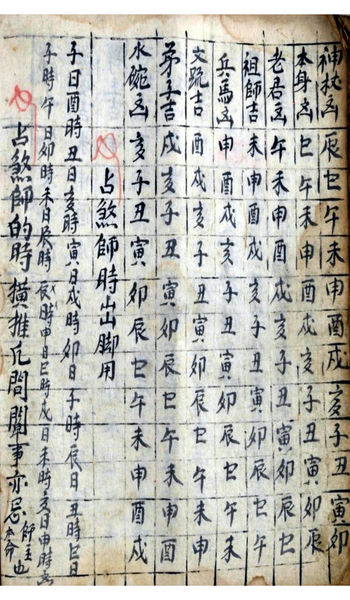 神祕凶辰巳午未申酉戌亥子丑寅卯
本身凶巳午未申酉戌亥子丑寅卯辰
老君凶午未申酉戌亥子丑寅卯辰巳
祖師吉未申酉戌亥子丑寅卯辰巳午
兵馬凶申酉戌亥子丑寅卯辰巳午未
文疏吉酉戌亥子丑寅卯辰巳午未申
弟子吉戌亥子丑寅卯辰巳午未申酉
水碗凶亥子丑寅卯辰巳午未申酉戌
占煞師時出山脚用
子日酉時丑日亥時寅日戌時卯日子時辰日丑時巳日
子時午日卯時未日辰時申日巳時戌日未時亥日申時
占煞師的時横推凡間聞事亦忌師主本命也